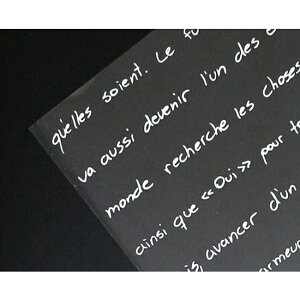 qu'elles soient. Le fu
va aussi devenir l'un des
monde recherche les choses
ainsi que «Oui» pour to
is, avancer d'un
armeur